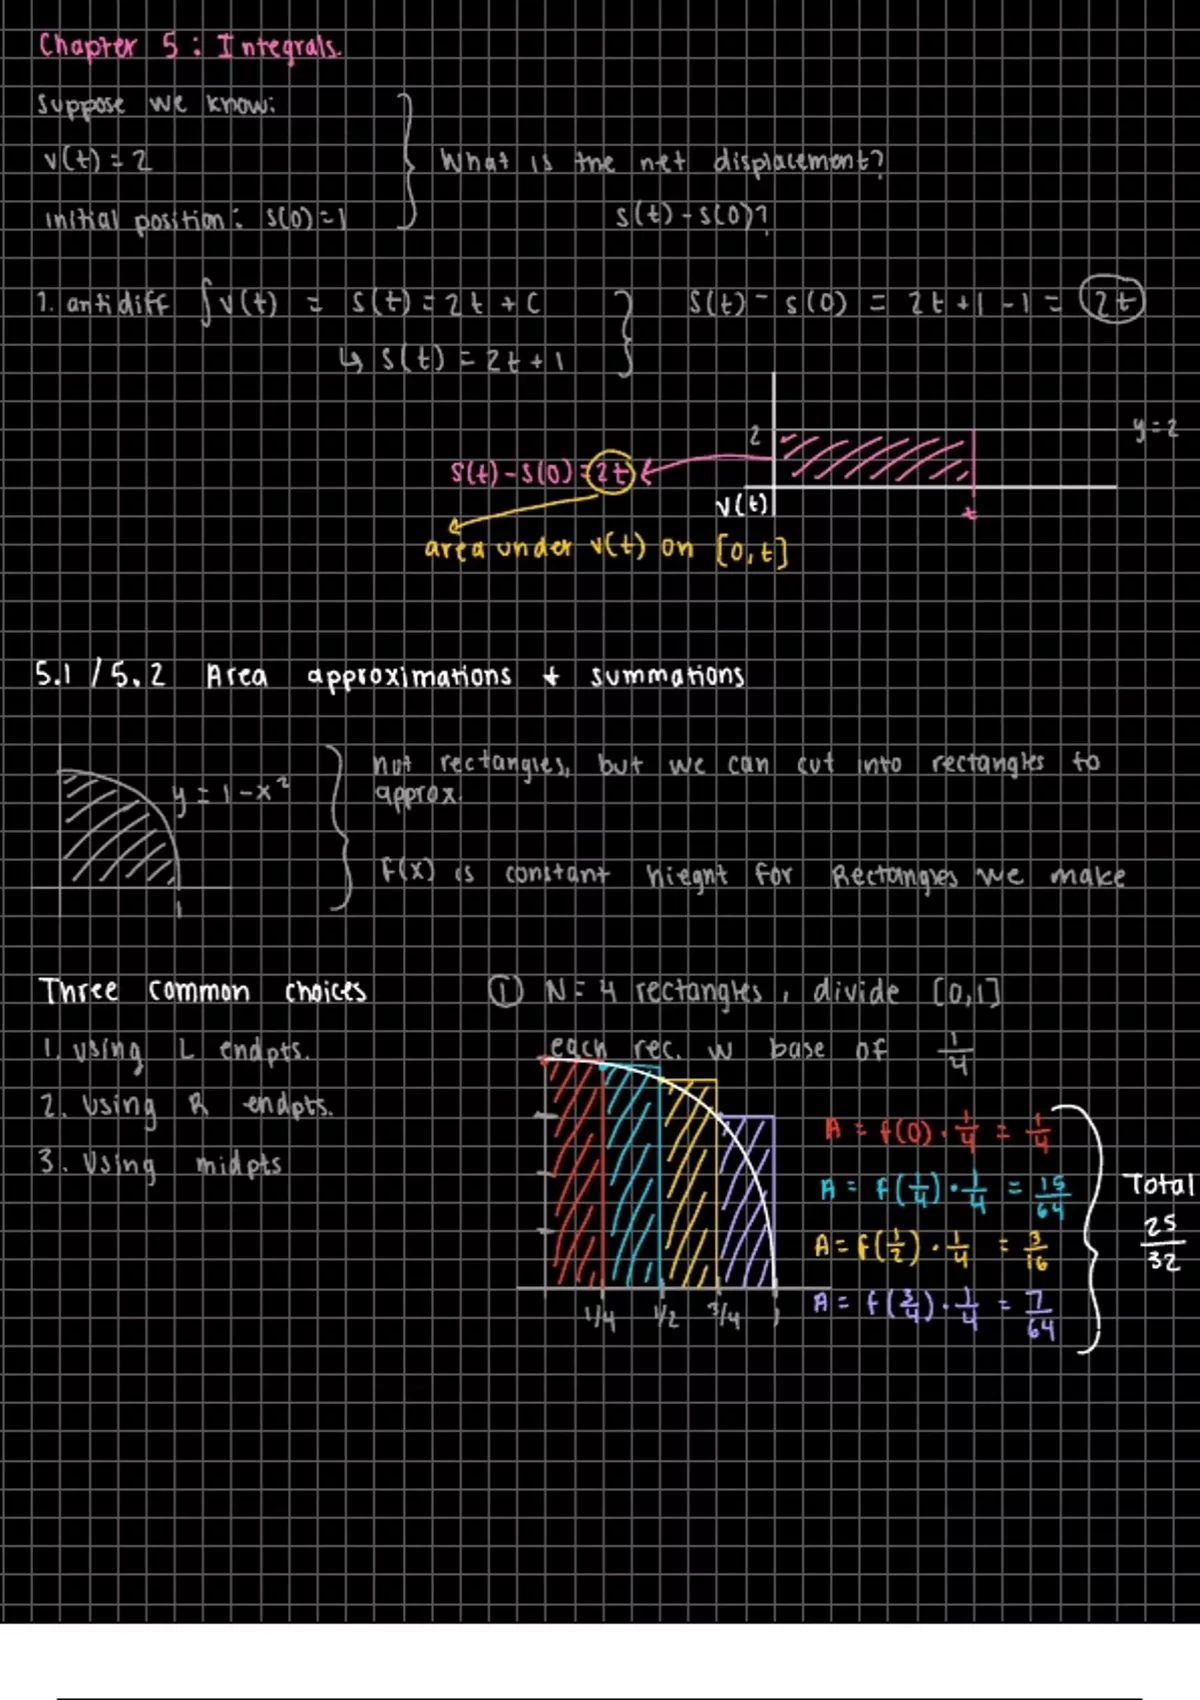 Chapter 5: Integrals
Suppose we know:
v(t) = 2
What is the net displacement?
initial position: s(0)=1
s(t) - s(0)?
1. antidiff ∫v(t) = s(t) = 2t + C
s(t) - s(0) = 2t + 1 - 1 = 2t
↳ s(t) = 2t + 1
2
y = 2
s(t) - s(0) = 2t
v(t)
t
area under v(t) on [0,t]
5.1 / 5.2 Area approximations + summations
not rectangles, but we can cut into rectangles to
y = 1 - x²
approx.
f(x) is constant hieght for Rectangles we make
1
Three common choices
① N = 4 rectangles, divide [0,1]
1. using L endpts.
each rec. w base of 1/4
2. Using R endpts.
3. Using midpts
A = f(0) · 1/4 = 1/4
A = f(1/4) · 1/4 = 15/64
A = f(1/2) · 1/4 = 3/16
A = f(3/4) · 1/4 = 7/64
Total
25/32
1/4 1/2 3/4 1